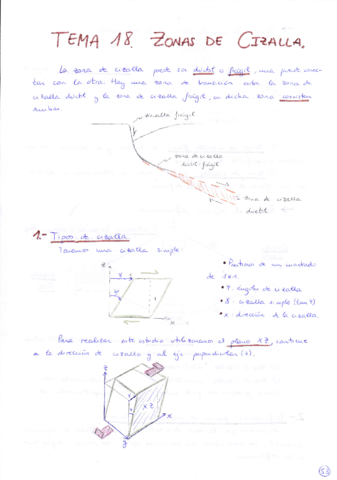 TEMA 18. ZONAS DE CIZALLA.
La zona de cizalla puede ser dúctil o frágil, una puede conec-
tar con la otra. Hay una zona de transición entre la zona de
cizalla dúctil y la zona de cizalla frágil, en dicha zona coexisten
ambas.
cizalla frágil
zona de cizalla
dúctil-frágil
zona de cizalla
dúctil
1.- Tipos de cizalla.
Tenemos una cizalla simple:
• Partimos de un cuadrado
de 1x1.
• φ: ángulo de cizalla
• γ: cizalla simple (tan φ)
• x: dirección de la cizalla.
Para realizar este estudio utilizamos el plano XZ, contiene
a la dirección de cizalla y al eje perpendicular (z).
z
XZ
x
y